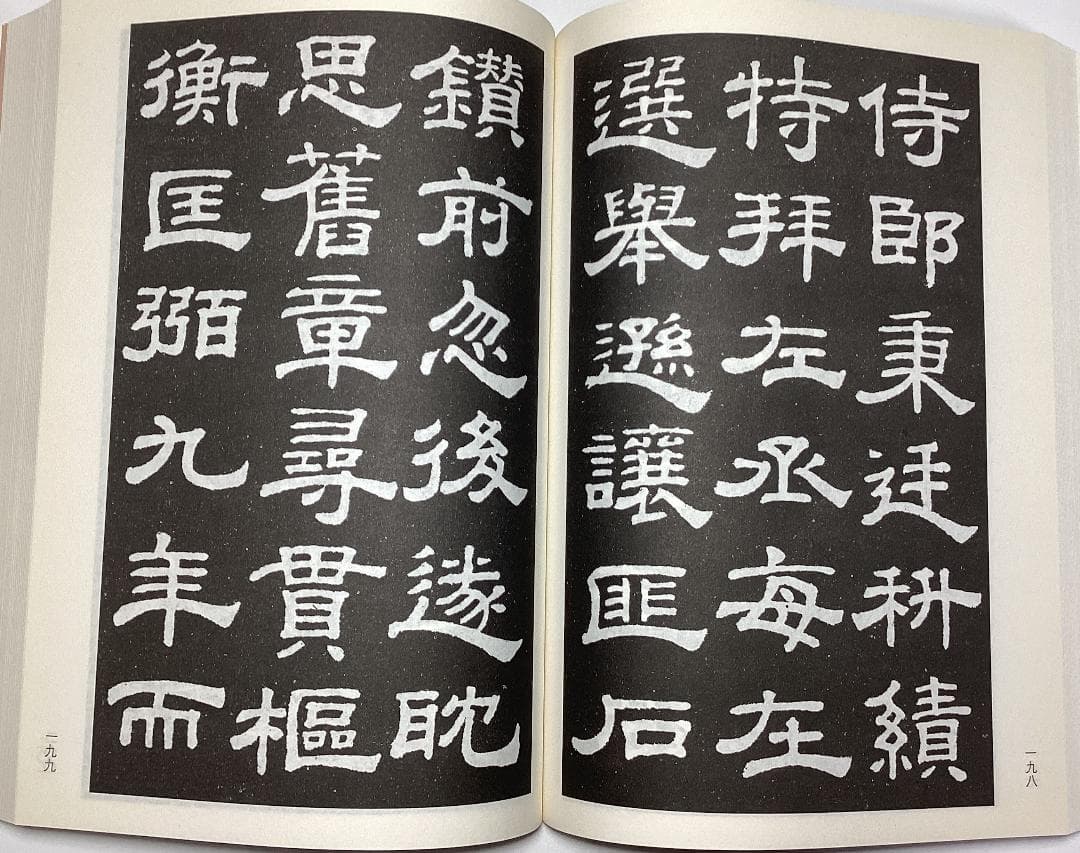 侍郎秉廷績
特拜左丞每在
選舉遜讓匪石
一九八
鑽前忽後遂耽
思舊章尋貫樞
衡匡弼九年而
一九九